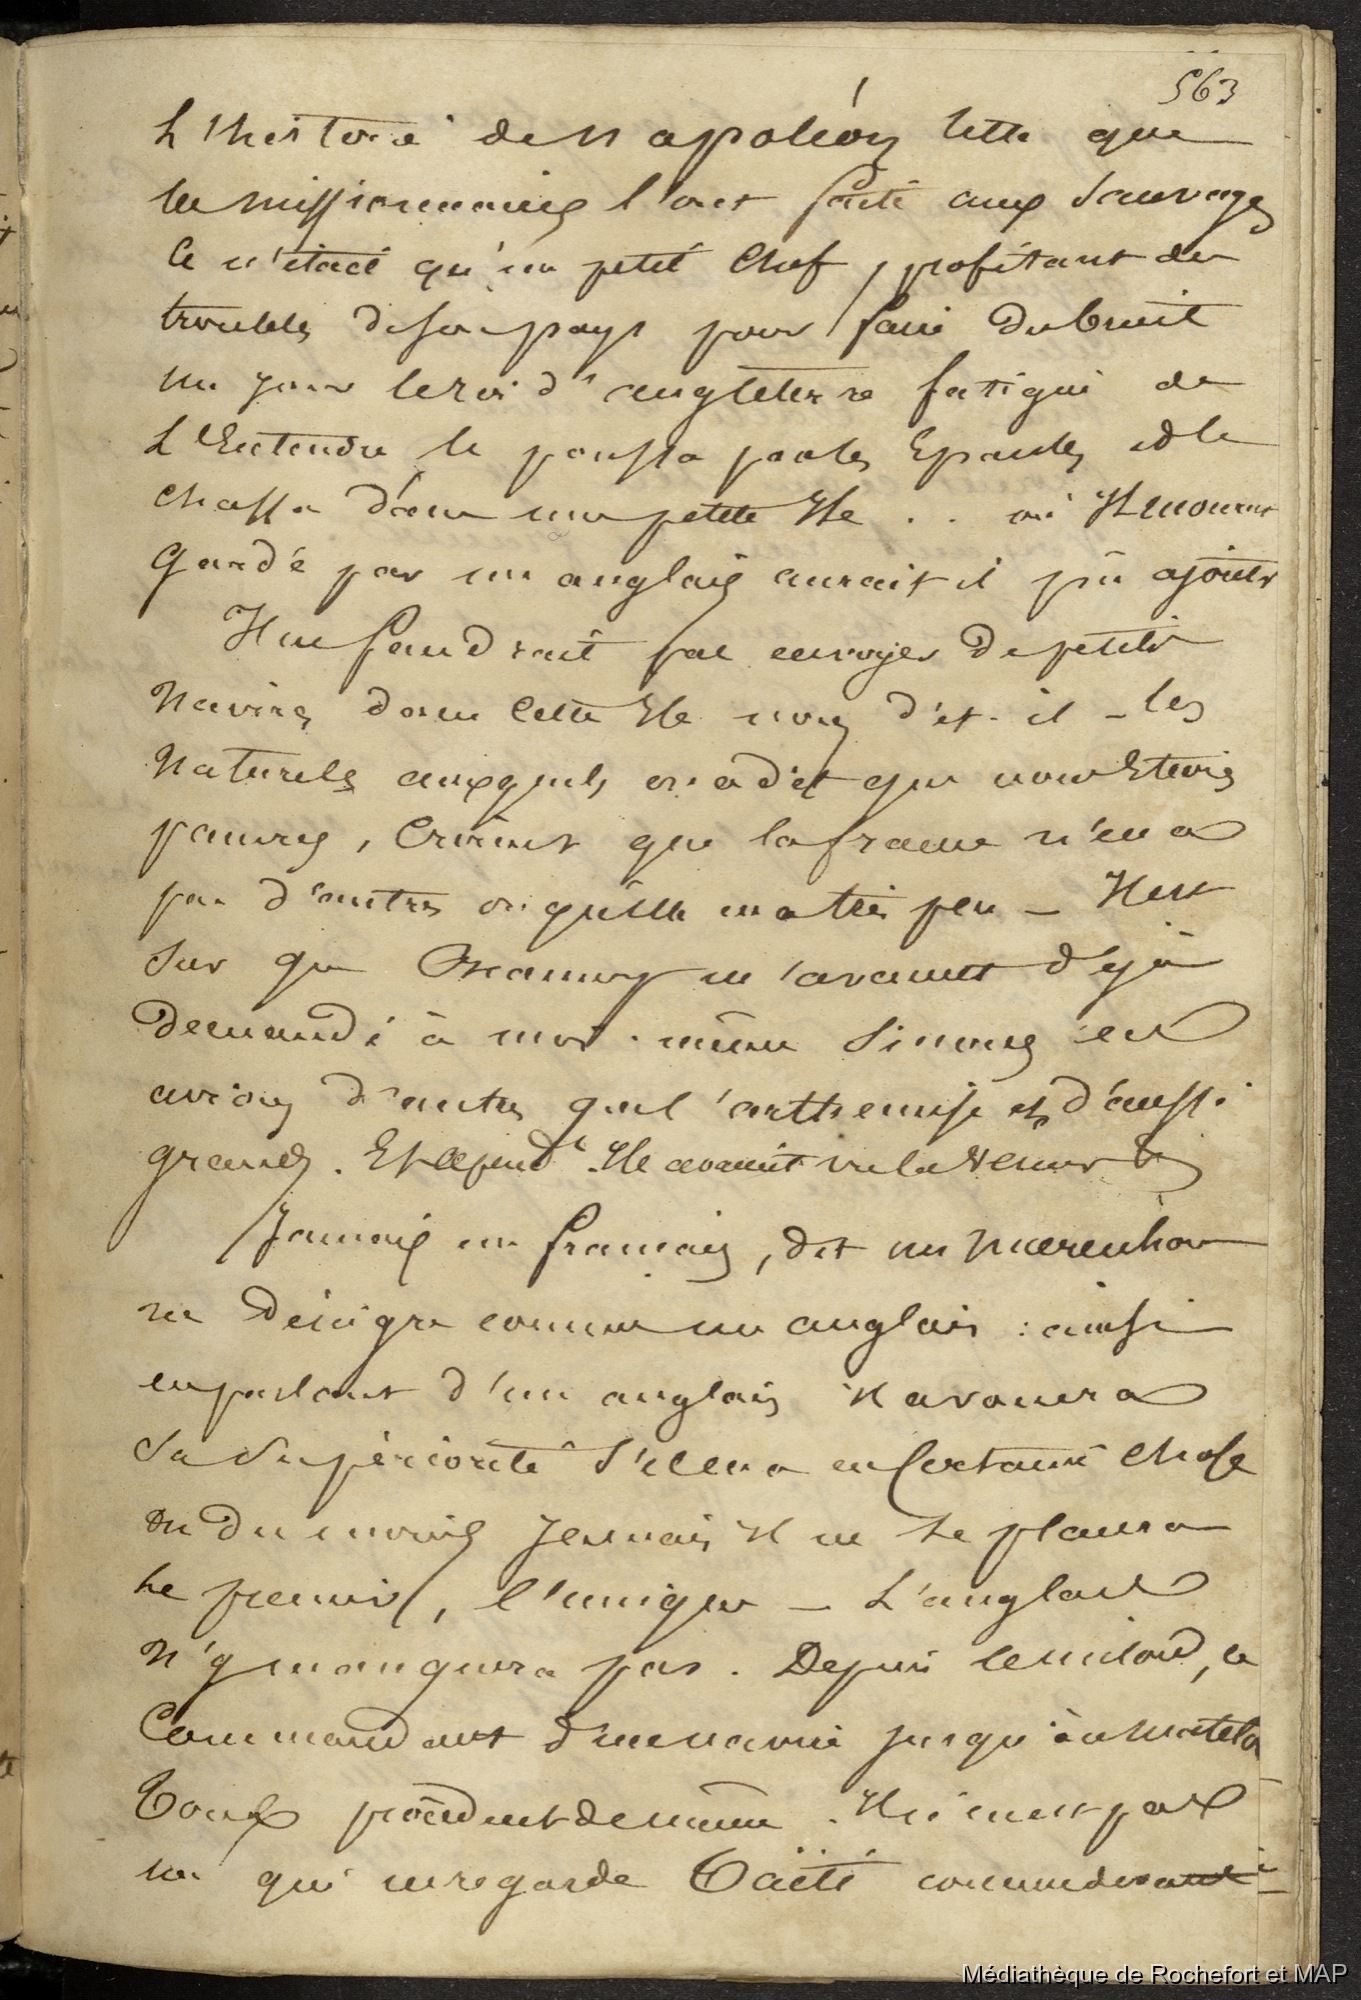 563
L'histoire de Napoléon telle que
les missionnaires l'ont faite aux sauvages
Ce n'était qu'un petit Chef, profitant des
troubles de son pays pour faire du bruit
un jour le roi d'angleterre fatigué de
L'Entendre le poussa par les Epaules et le
chassa dans une petite Ile .. où Il mourut
Gardé par un anglais aurait il pû ajouter
Il ne faudrait pas envoyer de petits
Navires dans cette Ile nous dit-il - les
Naturels auxquels on a dit que nous Etions
pauvres, Croient que la france n'en a
pas d'autres ou qu'elle en a très peu - Il est
Sur que m'avaient déjà
demandé à moi-même Si nous en
avions d'autres que l'arthemise et d'aussi
grands. Et cepend.t Ils avaient vu la Vénus &
Jamais un français, dit un
ne dénigre comme un anglais : ainsi
en parlant d'un anglais il avouera
Sa Supériorité S'il en a en Certaine chose
ou du moins Jamais Il ne Se placera
le premier, l'unique - L'anglais
N'y manquera pas. Depuis le milord, le
Commandant d'un navire jusqu'au Matelot
Tous procèdent de même. Il n'en est pas
un qui ne regarde Taïti comme